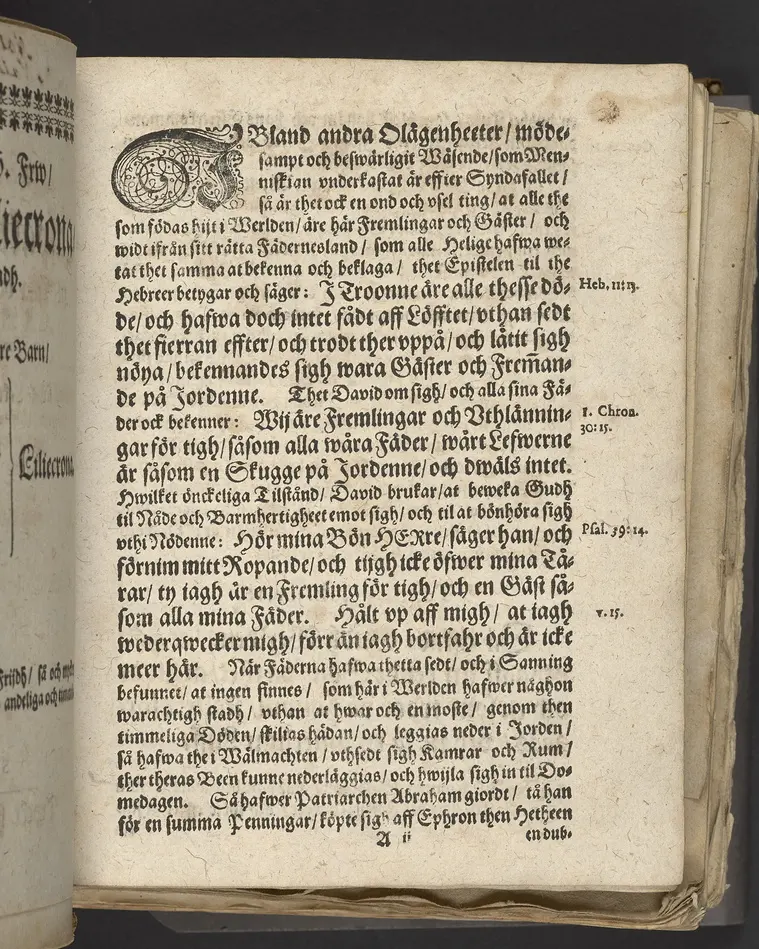 Frw/
Liliecrona
re Barn/
Liliecrona
Frijdh/ så och
andeliga och
IBland andra Olägenheeter/ möde-
sampt och beswärligit Wäsende/ som Men-
niskian vnderkastat är effter Syndafallet/
så är thet ock en ond och vsel ting/ at alle the
som födas hijt i Werlden/ äre här Fremlingar och Gäster/ och
widt ifrån sitt rätta Fädernesland/ som alle Helige hafwa we-
tat thet samma at bekenna och beklaga/ thet Epistelen til the
Hebreer betygar och säger: J Troonne äre alle thesse dö-
Heb. 11:13.
de/ och hafwa doch intet fådt aff Löfftet/ vthan sedt
thet fierran effter/ och trodt ther vppå/ och låtit sigh
nöya/ bekennandes sigh wara Gäster och Frem̃an-
de på Jordenne. Thet David om sigh/ och alla sina Fä-
der ock bekenner: Wij äre Fremlingar och Vthlännin-
1. Chron.
30:15.
gar för tigh/ såsom alla wåra Fäder/ wårt Lefwerne
är såsom en Skugge på Jordenne/ och dwäls intet.
Hwilket önckeliga Tilstånd/ David brukar/ at beweka Gudh
til Nåde och Barmhertigheet emot sigh/ och til at bönhöra sigh
vthi Nödenne: Hör mina Bön HERre/ säger han/ och
Psal. 39:14.
förnim mitt Ropande/ och tijgh icke öfwer mina Tå-
rar/ ty iagh är en Fremling för tigh/ och en Gäst så-
som alla mina Fäder. Hålt vp aff migh/ at iagh
v. 15.
wederqwecker migh/ förr än iagh bortfahr och är icke
meer här. När Fäderna hafwa thetta sedt/ och i Sanning
befunnet/ at ingen finnes/ som här i Werlden hafwer någhon
warachtigh stadh/ vthan at hwar och en moste/ genom then
timmeliga Döden/ skilias hädan/ och leggias neder i Jorden/
så hafwa the i Wälmachten/ vthsedt sigh Kamrar och Rum/
ther theras Been kunne nederläggias/ och hwijla sigh in til Do-
medagen. Så hafwer Patriarchen Abraham giordt/ tå han
för en summa Penningar/ köpte sigh aff Ephron then Hetheen
A ij
en dub-